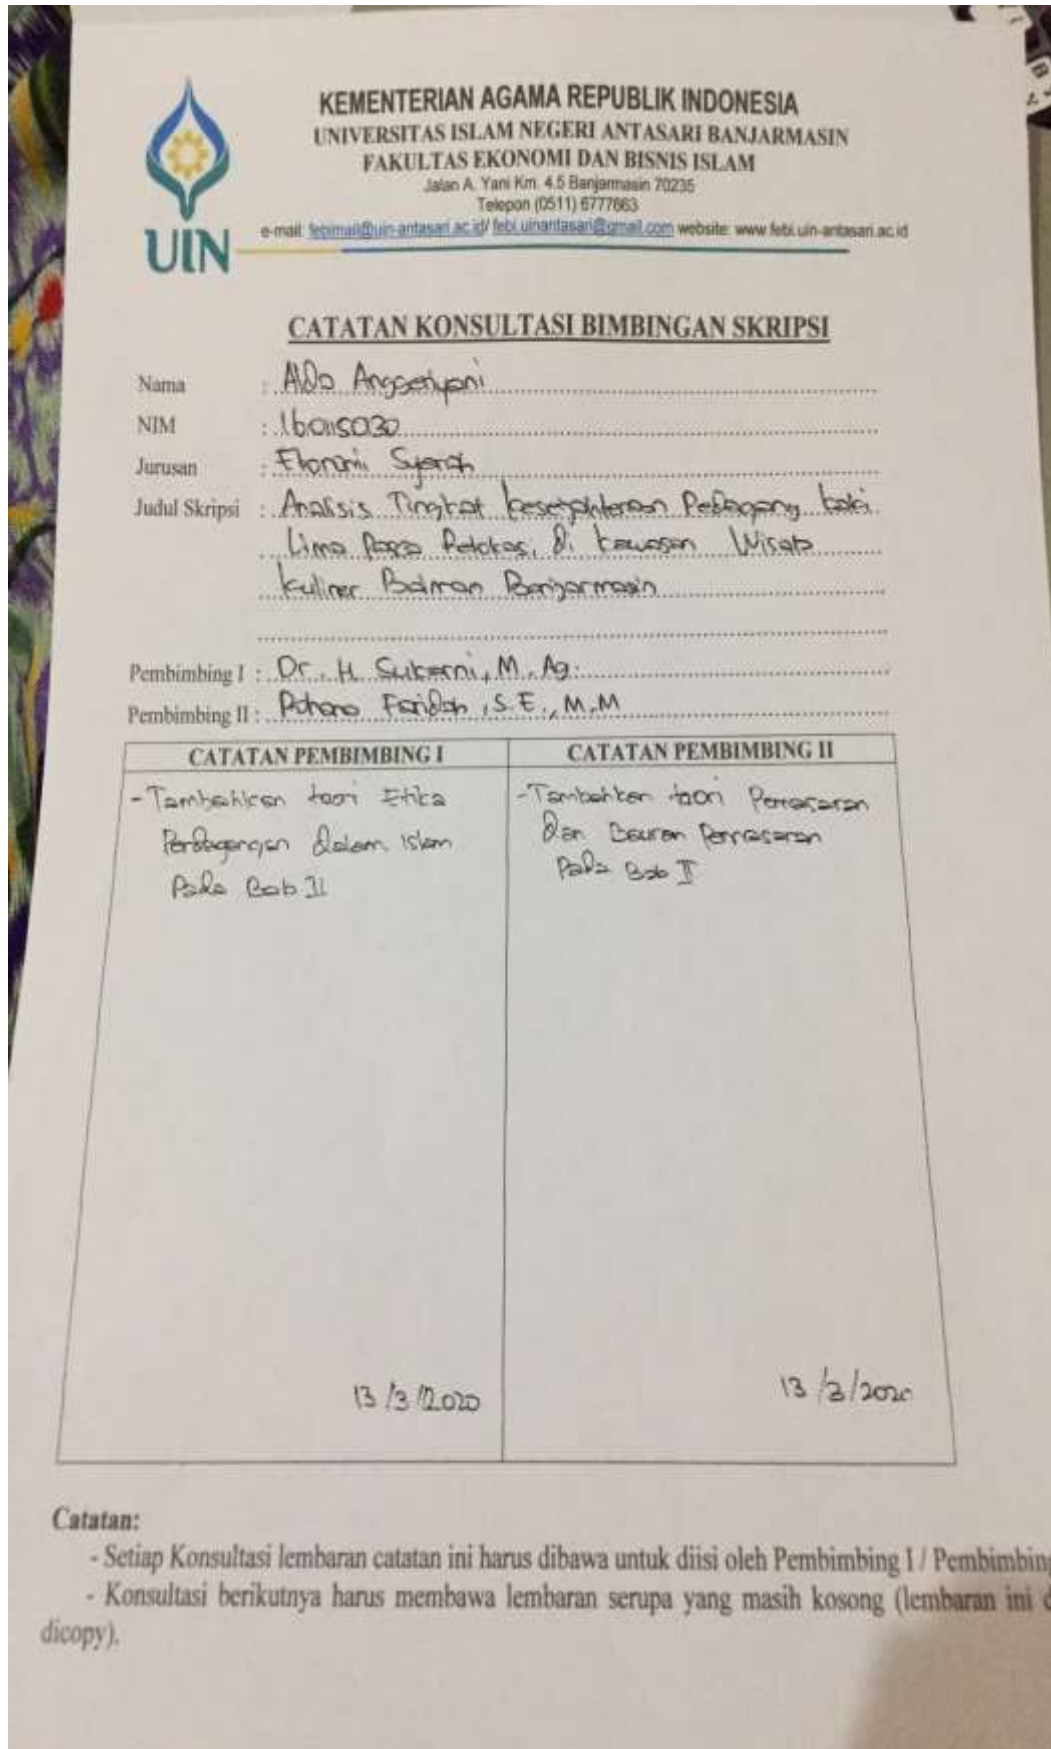 KEMENTERIAN AGAMA REPUBLIK INDONESIA
UNIVERSITAS ISLAM NEGERI ANTASARI BANJARMASIN
FAKULTAS EKONOMI DAN BISNIS ISLAM
Jalan A. Yani Km. 4.5 Banjarmasin 70235
Telepon (0511) 6777663
UIN
e-mail: febimail@uin-antasari.ac.id/ febi.uinantasari@gmail.com website: www.febi.uin-antasari.ac.id
CATATAN KONSULTASI BIMBINGAN SKRIPSI
Nama : Alda Anggeriyani
NIM :
Jurusan : Ekonomi Syariah
Judul Skripsi : Analisis Tingkat Kesejahteraan Pedagang kaki
Lima Pasca Relokasi di kawasan Wisata
kuliner Baiman Banjarmasin
Pembimbing I : Dr. H. Sukarni, M.Ag.
Pembimbing II : Faridah, S.E., M.M
CATATAN PEMBIMBING I
- Tambahkan teori Etika
Perdagangan dalam Islam
Pada Bab II
13/3/2020
CATATAN PEMBIMBING II
- Tambahkan teori Pemasaran
dan Bauran Pemasaran
Pada Bab II
13/3/2020
Catatan:
- Setiap Konsultasi lembaran catatan ini harus dibawa untuk diisi oleh Pembimbing I / Pembimbing
- Konsultasi berikutnya harus membawa lembaran serupa yang masih kosong (lembaran ini d
dicopy).